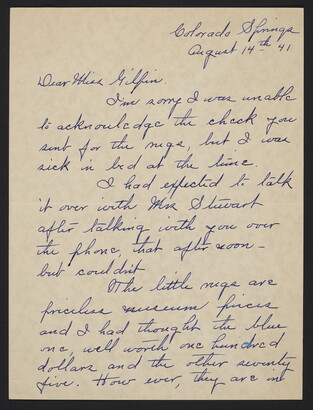 Colorado Springs
August 14th 41
Dear Miss Gilpin.
I'm sorry I was unable
to acknowledge the check you
sent for the rugs, but I was
sick in bed at the time.
I had expected to talk
it over with Mrs Stewart
after talking with you over
the phone, that after noon -
but couldn't
The little rugs are
priceless museum pieces
and I had thought the blue
one, well worth one hundred
dollars and the other seventy
five. How ever, they are in